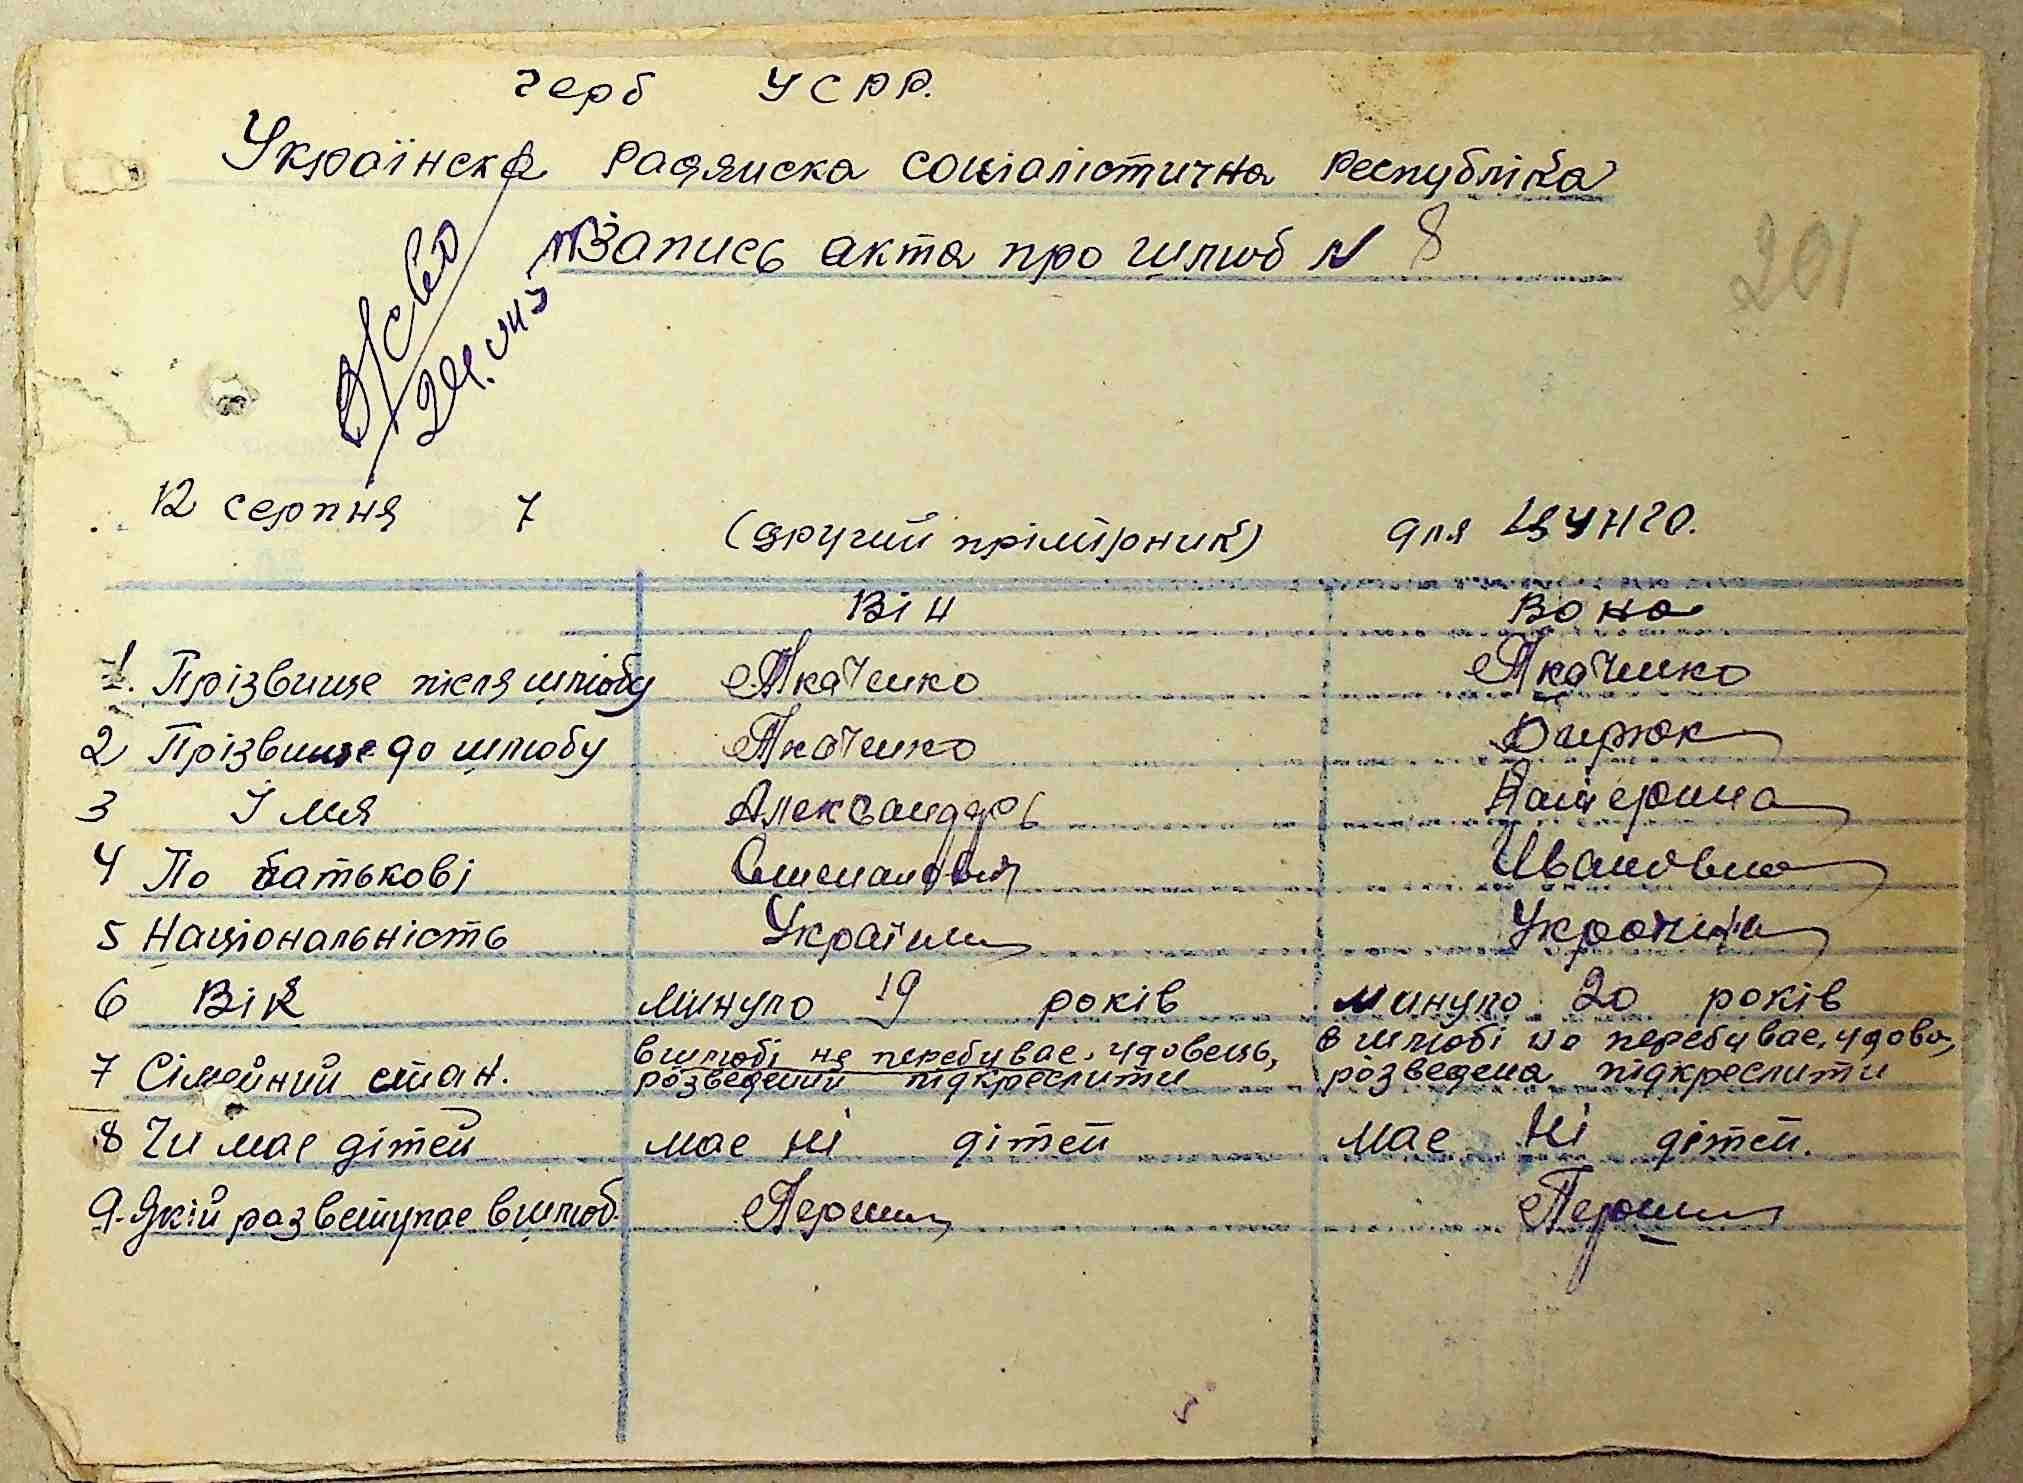 герб УСРР.
Українска Радянска Соціалістична Республіка
Запись акта про шлюб N 8
201
12 серпня 7 (другий прімірник) для ЦУНГО.
Він Вона
1. Прізвище після шлюбу Ткаченко Ткаченко
2 Прізвище до шлюбу Ткаченко Бирюк
3 Імя Александръ Катерина
4 По батькові Степанович Ивановна
5 Національність Українец Українка
6 Вік минуло 19 років минуло 20 років
7 Сімейний стан. в шлюбі не перебувае, удовець, розведений підкреслити в шлюбі не перебувае, удова, розведена підкреслити
8 Чи має дітей має ні дітей має ні дітей.
9. Якій раз вступає в шлюб. Перший Перший